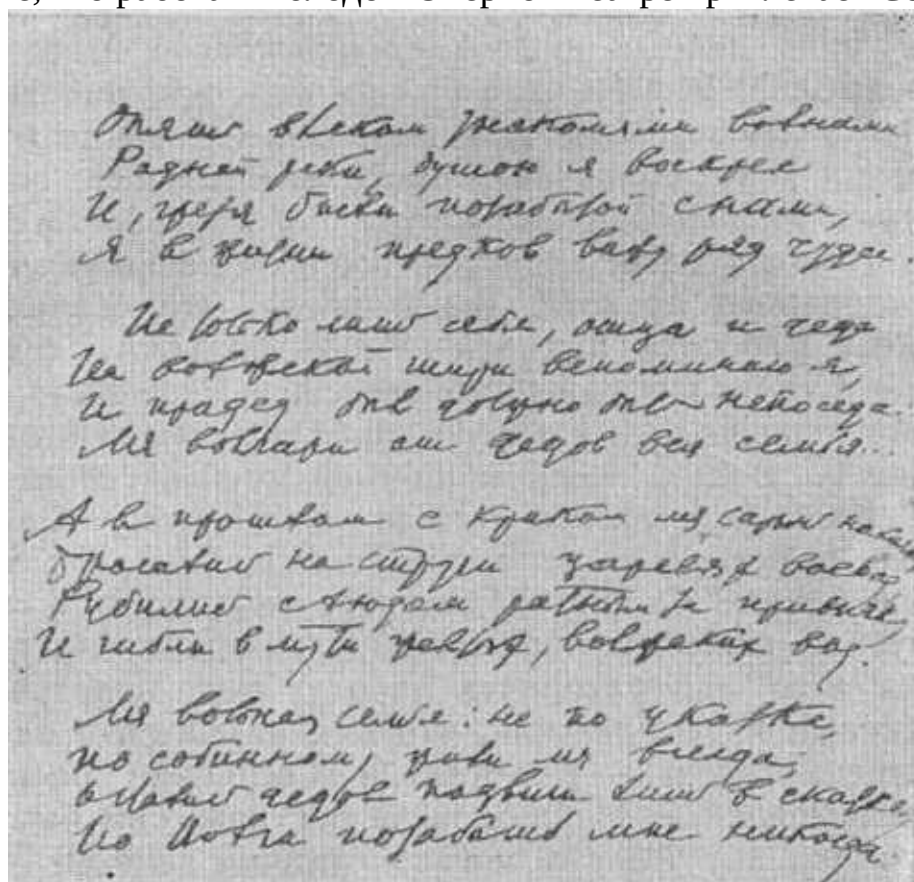 Опять влеком знакомыми волнами
Родной реки, душою я воскрес
И, грезя были позабытой снами,
Я в жизни предков вижу ряд чудес.
Не только лишь себя, отца и деда
На волжской шири вспоминаю я,
И прадед был должно быть непоседа.
Мы волгари от дедов вся семья...
А в прошлом с криком мы, сарынь на кичку
Бросались на струги царевых воевод
Рубились с людом ратным за привычку,
И гибли в мути желтых, волжских вод.
Мы вольная семья: не по указке,
По собинному жили мы всегда,
Остались дедов подвиги лишь в сказке,
Но Волга позабыть мне никогда.